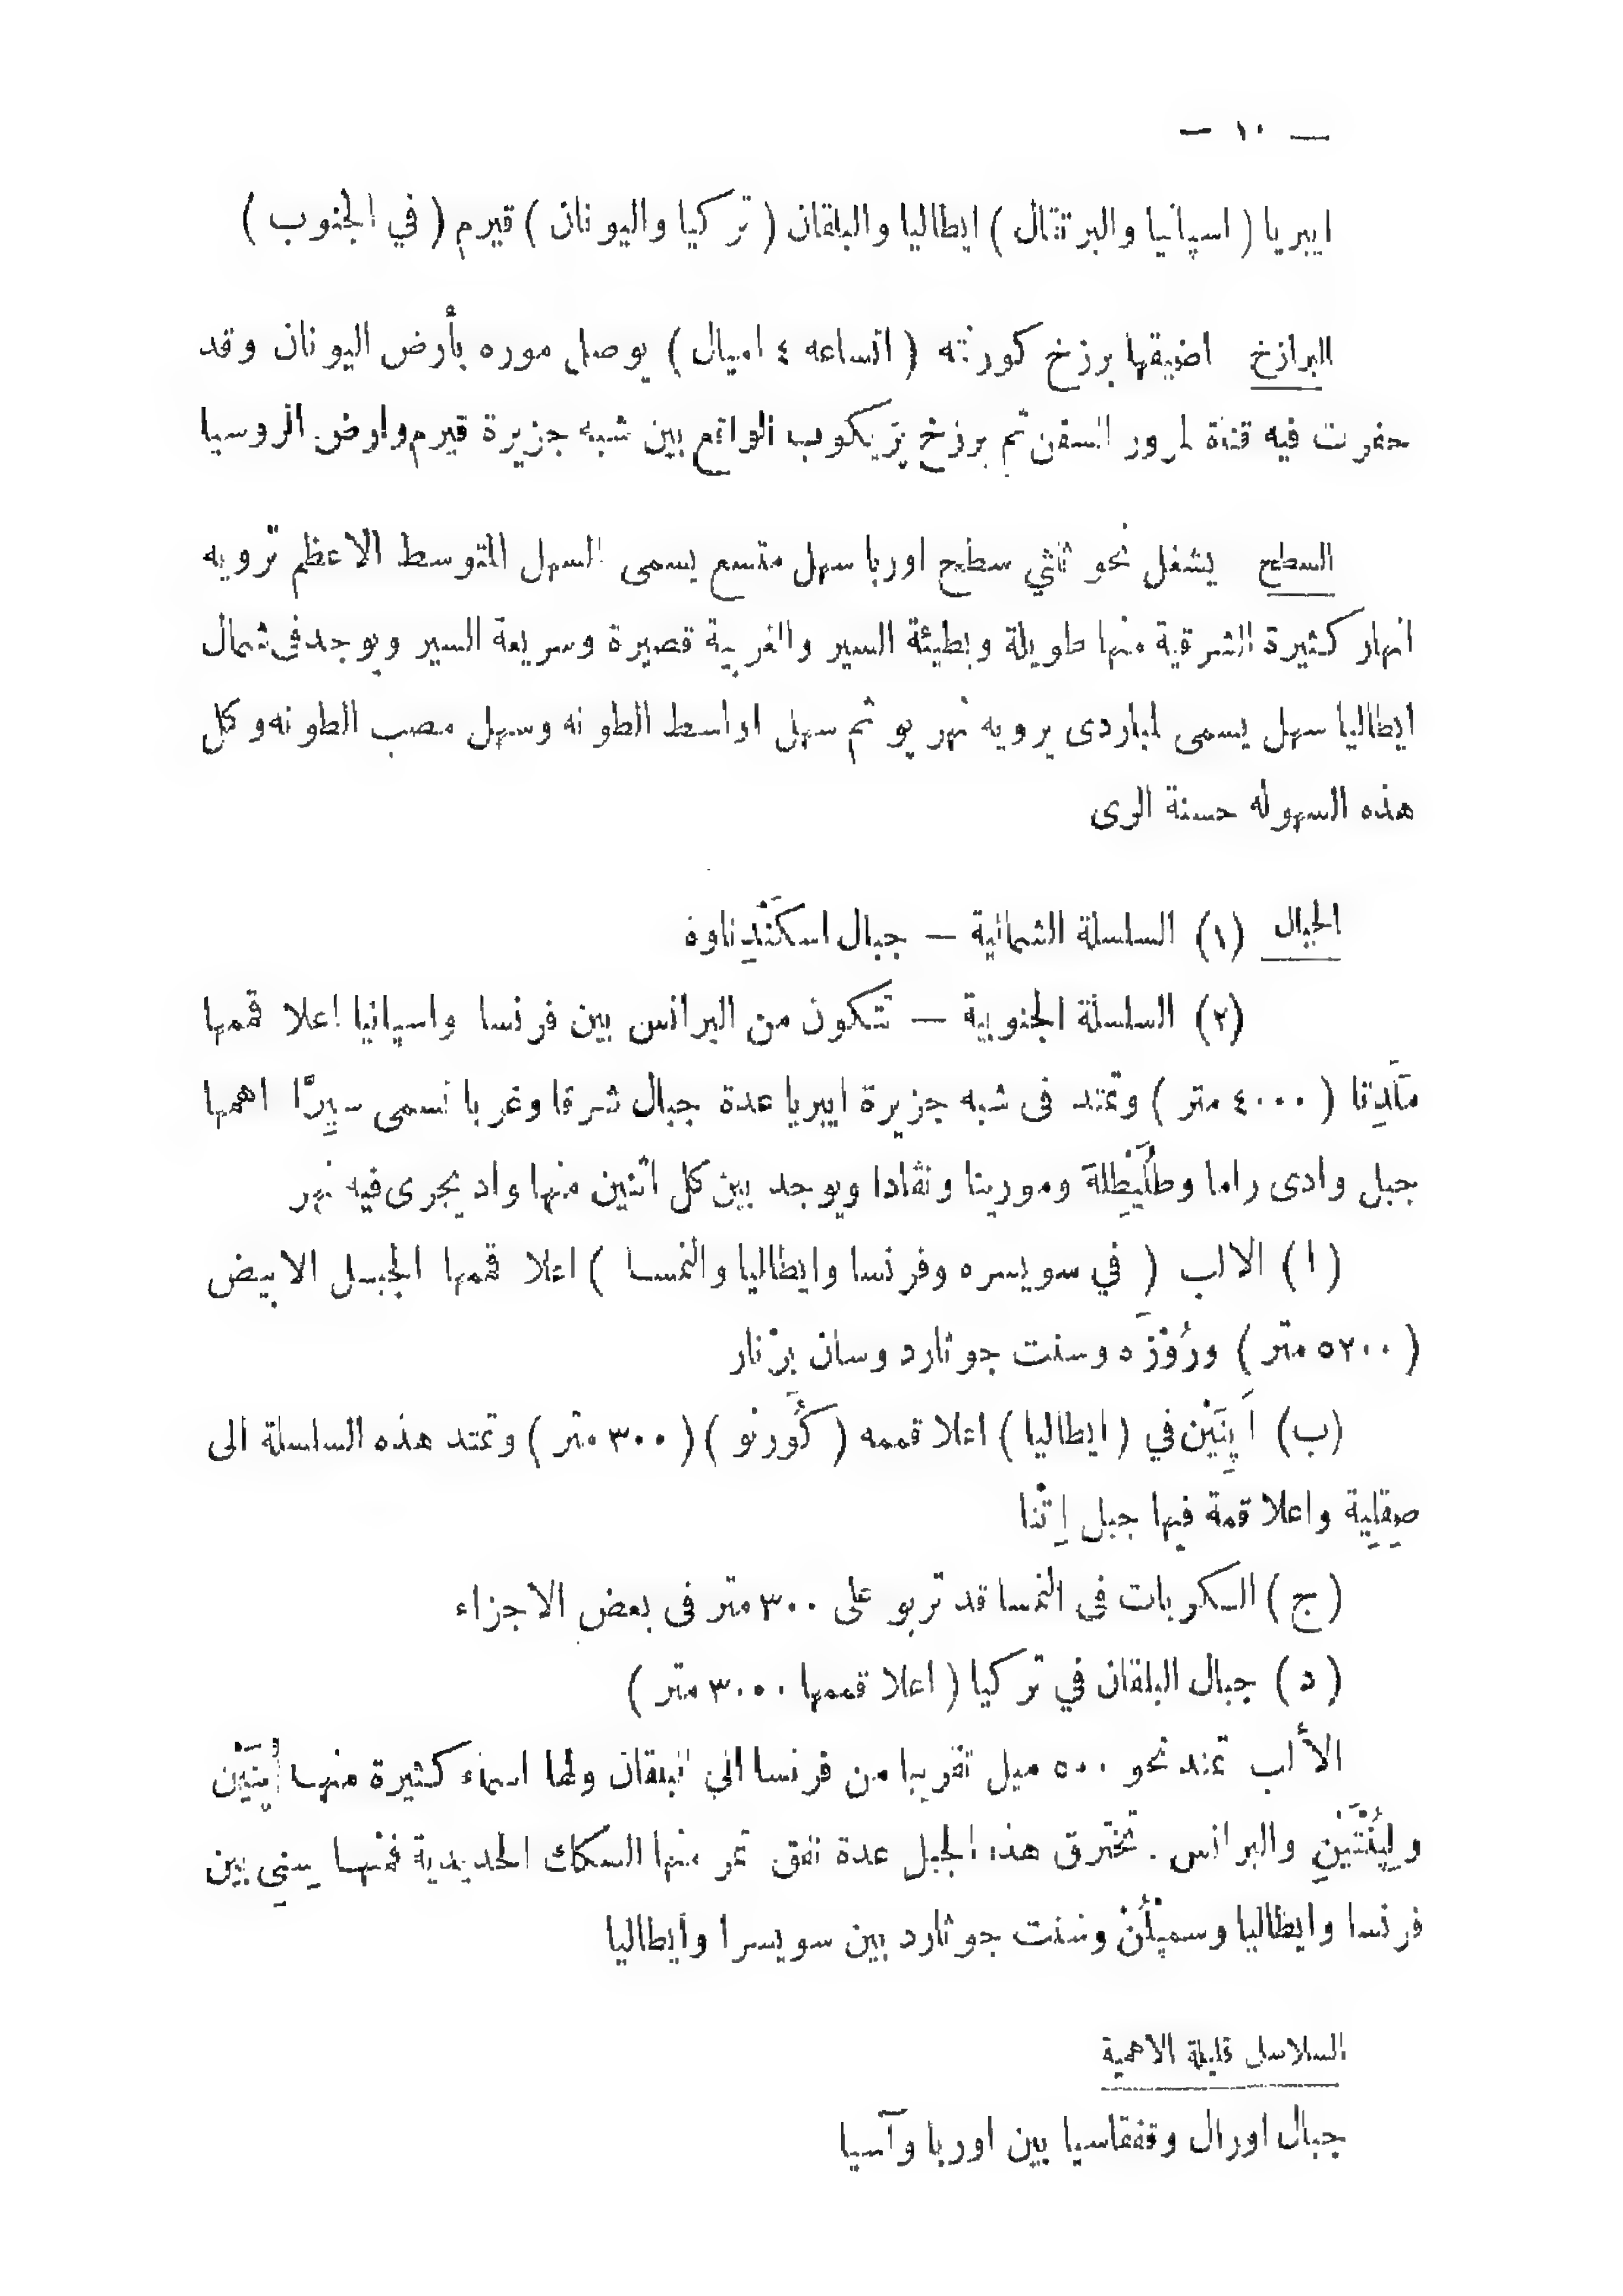 — ١٠ —
ايبريا ( اسپانيا والبرتقال ) ايطاليا والبلقان ( تركيا واليونان ) قيرم ( في الجنوب )
البرازخ اضيقها برزخ كورنته ( اتساعه ٤ اميال ) يوصل موره بأرض اليونان وقد
حفرت فيه قناة لمرور السفن ثم برزخ پريكوب الواقع بين شبه جزيرة قيرم وارض الروسيا
السطح يشغل نحو ثلثي سطح اوربا سهل متسع يسمى السهل المتوسط الاعظم ترويه
انهار كثيرة الشرقية منها طويلة وبطيئة السير والغربية قصيرة وسريعة السير ويوجد فى شمال
ايطاليا سهل يسمى لمباردى يرويه نهر پو ثم سهل اواسط الطونه وسهل مصب الطونه وكل
هذه السهوله حسنة الرى
الجبال (١) السلسلة الشمالية — جبال اسكَنْدِناوه
(٢) السلسلة الجنوبية — تتكون من البرانس بين فرنسا واسپانيا اعلا قممها
مَلَدِتا ( ٤٠٠٠ متر ) وتمتد فى شبه جزيرة ايبريا عدة جبال شرقا وغربا تسمى سيِرّا اهمها
جبل وادى راما وطُلَيْطِلة ومورينا ونڤادا ويوجد بين كل اثنين منها واد يجرى فيه نهر
(ا) الالب ( في سويسره وفرنسا وايطاليا والنمسا ) اعلا قممها الجبل الابيض
( ٥٢٠٠ متر ) ورُوْزَه وسنت جوثارد وسان برْنار
(ب) اَپِنَيْن في ( ايطاليا ) اعلا قممه ( كُورنو ) ( ٣٠٠ متر ) وتمتد هذه السلسلة الى
صِقِلِية واعلا قمة فيها جبل اِتْنا
(ج) السكربات فى النمسا قد تربو على ٣٠٠ متر فى بعض الاجزاء
(د) جبال البلقان في تركيا ( اعلا قممها ٣٠٠٠ متر )
الألب تمتد نحو ٥٠٠ ميل تقريبا من فرنسا الى البلقان ولها اسماء كثيرة منها
والبرانس . تخترق هذه الجبل عدة نفق تمر منها السكك الحديدية فمنها سِنِى بين
فرنسا وايطاليا وسمپْلُنْ وسنت جوثارد بين سويسرا وايطاليا
السلاسل قليلة الاهمية
جبال اورال وقفقاسيا بين اوربا وآسيا